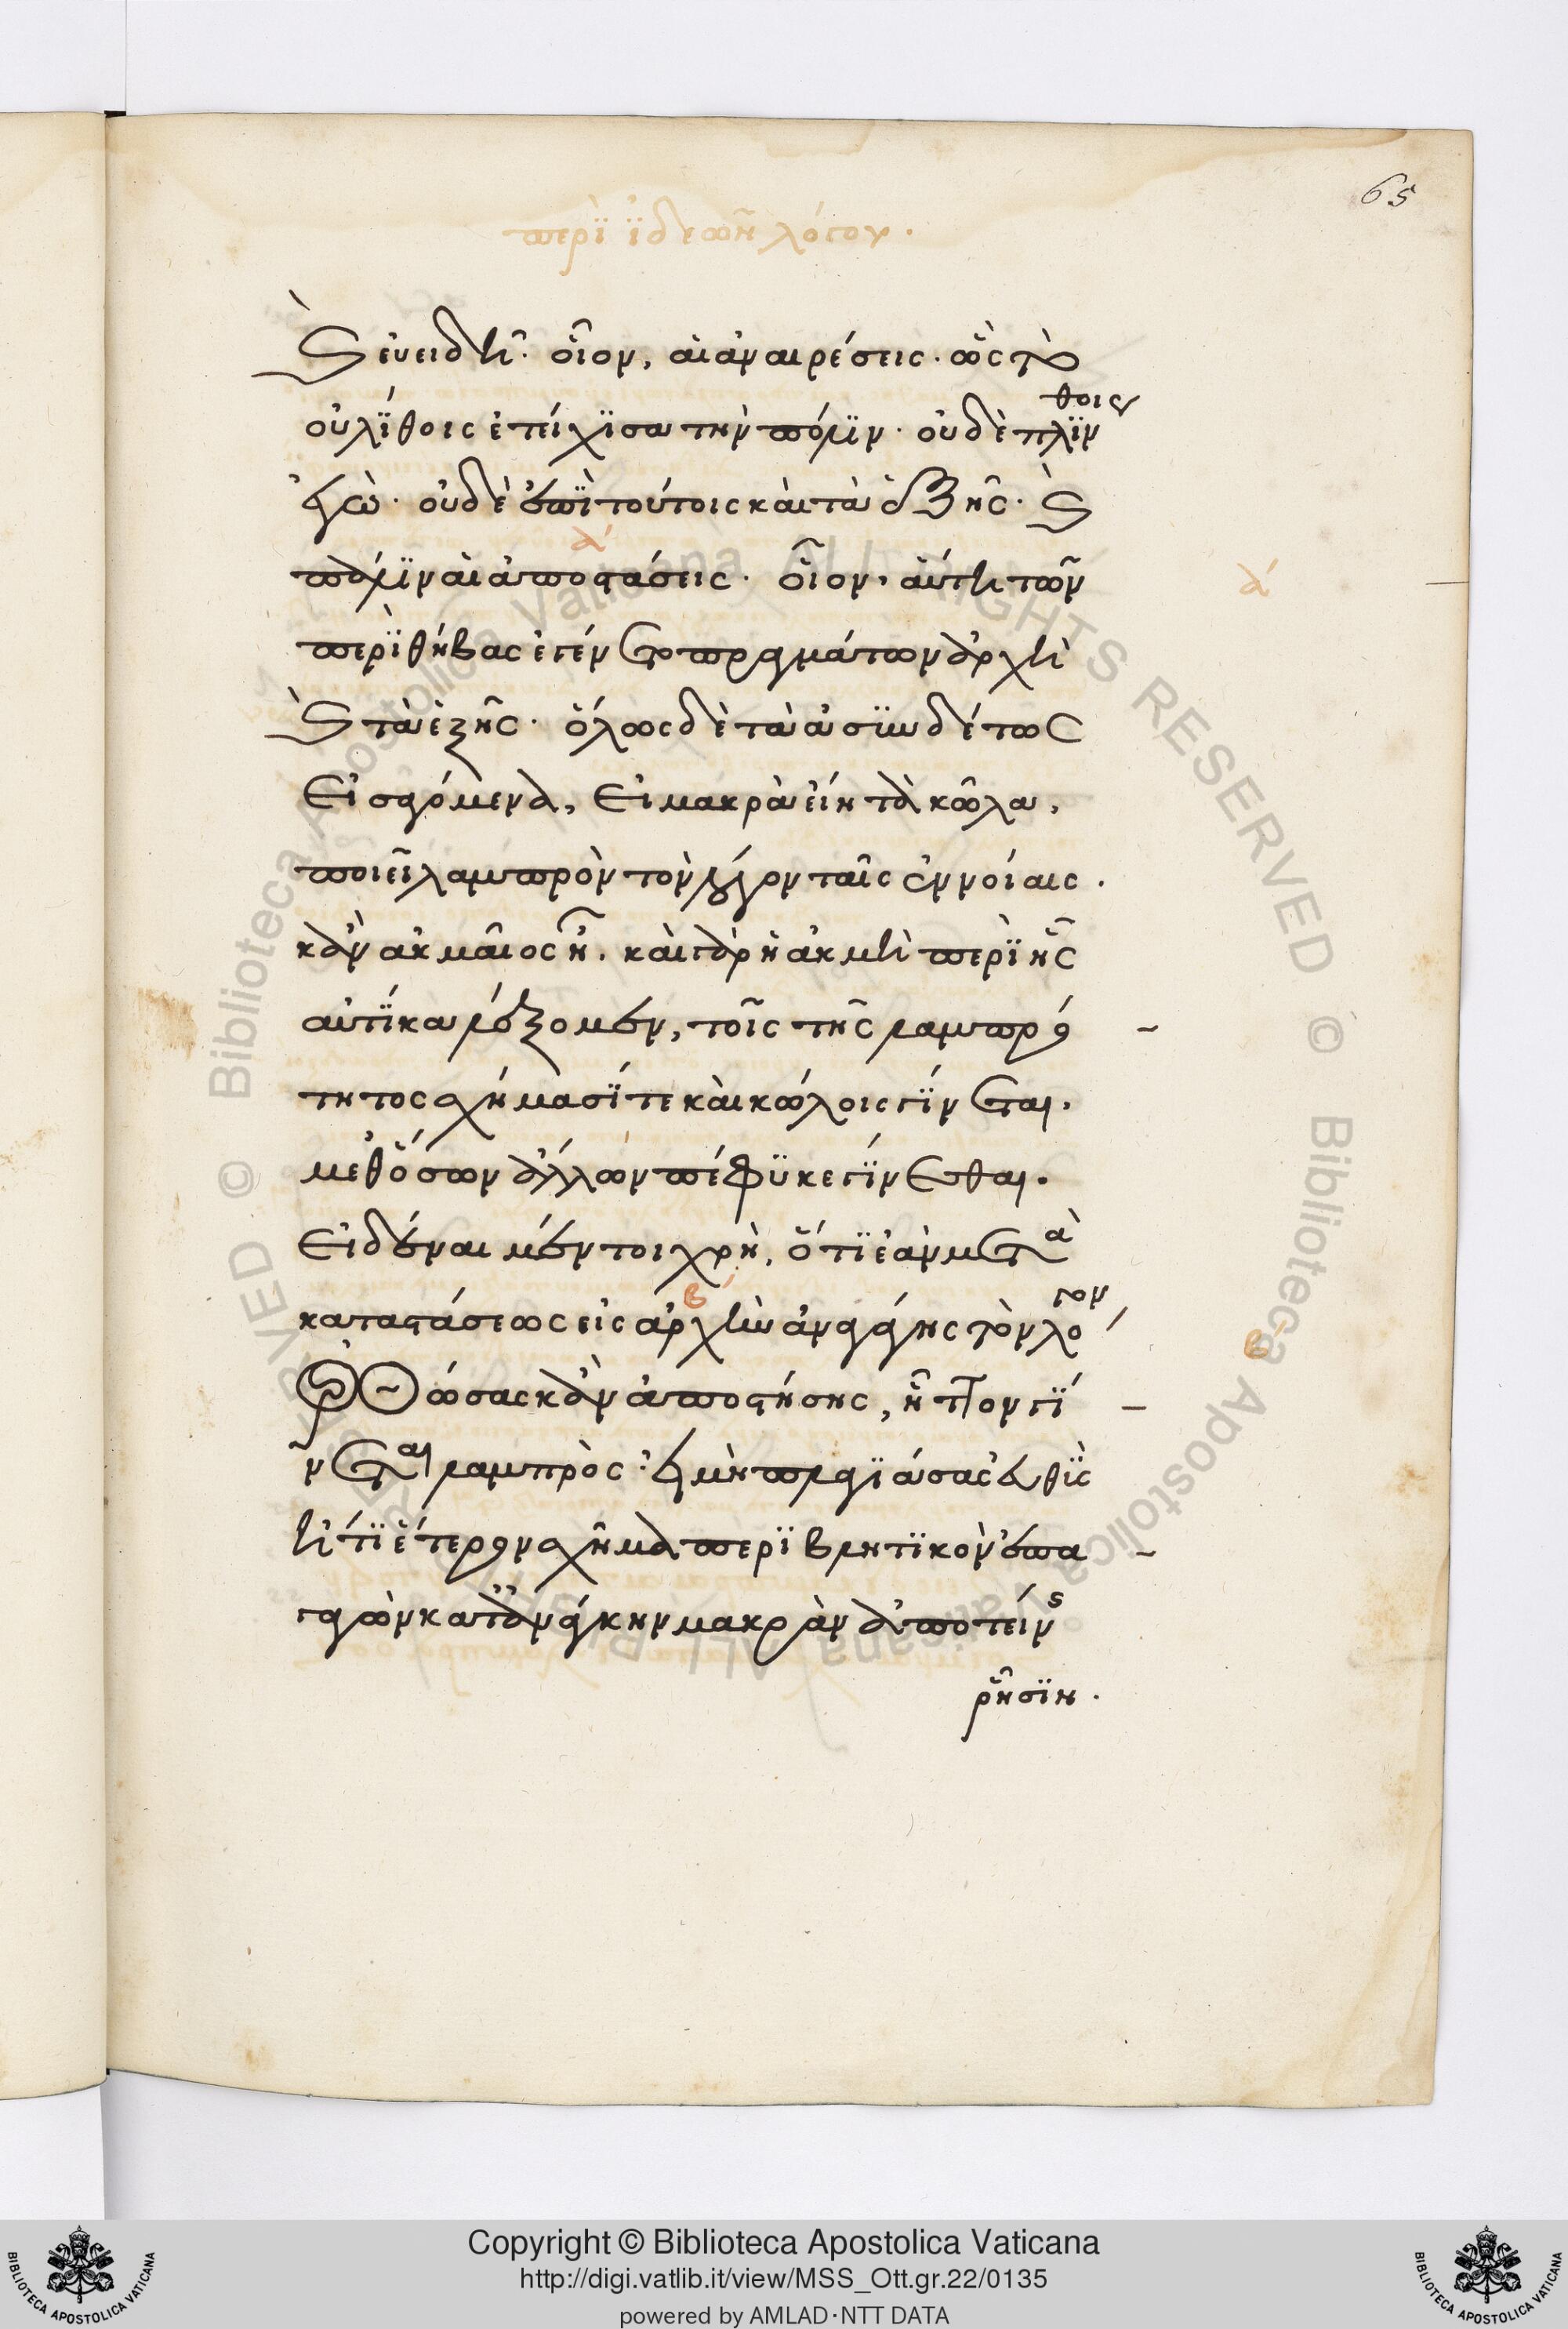 65
περὶ ἰδεῶν λόγου.
καὶ εὐειδῆ· οἷον, αἱ ἀναιρέσεις· ὡς τὸ
οὐ λίθοις ἐτείχισα τὴν πόλιν· οὐδὲ πλίνθοις
ἐγώ· οὐδὲ ἐπὶ τούτοις καὶ τὰ ἑξῆς· καὶ
πάλιν αἱ ἀποστάσεις· οἷον, αὕτη τῶν
περὶ θήβας ἐγένετο πραγμάτων ἀρχὴ
καὶ τὰ ἑξῆς· ὅλως δὲ τὰ ἀσυνδέτως
εἰσαγόμενα, εἰ μακρὰ εἴη τὰ κῶλα,
ποιεῖ λαμπρὸν τὸν λόγον ταῖς ἐννοίαις.
κἂν ἀκμαῖος ᾖ. καὶ γὰρ ἡ ἀκμὴ περὶ ἧς
αὐτίκα λέξομεν, τοῖς τῆς λαμπρό
τητος σχήμασί τε καὶ κώλοις γίνεται.
μεθ' ὅσων ἄλλων πέφυκε γίνεσθαι.
εἰδέναι μέντοι χρὴ, ὅτι ἐὰν μετὰ
καταστάσεως εἰς ἀρχὴν ἀναγάγῃς τὸν λόγον
ὀρθώσας κἂν ἀποστήσῃς, ἧττον γί
νεται λαμπρὸς· ἐὰν μὴ πλαγιάσας εὐθὺς
ἤ τι ἕτερον σχῆμα περιβλητικὸν ἐπα
γαγὼν κατ' ἀνάγκην μακρὰν ἀποτείνῃς
ῥῆσιν.
α'
α'
β'
β'
Copyright © Biblioteca Apostolica Vaticana
http://digi.vatlib.it/view/MSS_Ott.gr.22/0135
powered by AMLAD·NTT DATA
BIBLIOTECA APOSTOLICA VATICANA
BIBLIOTECA APOSTOLICA VATICANA